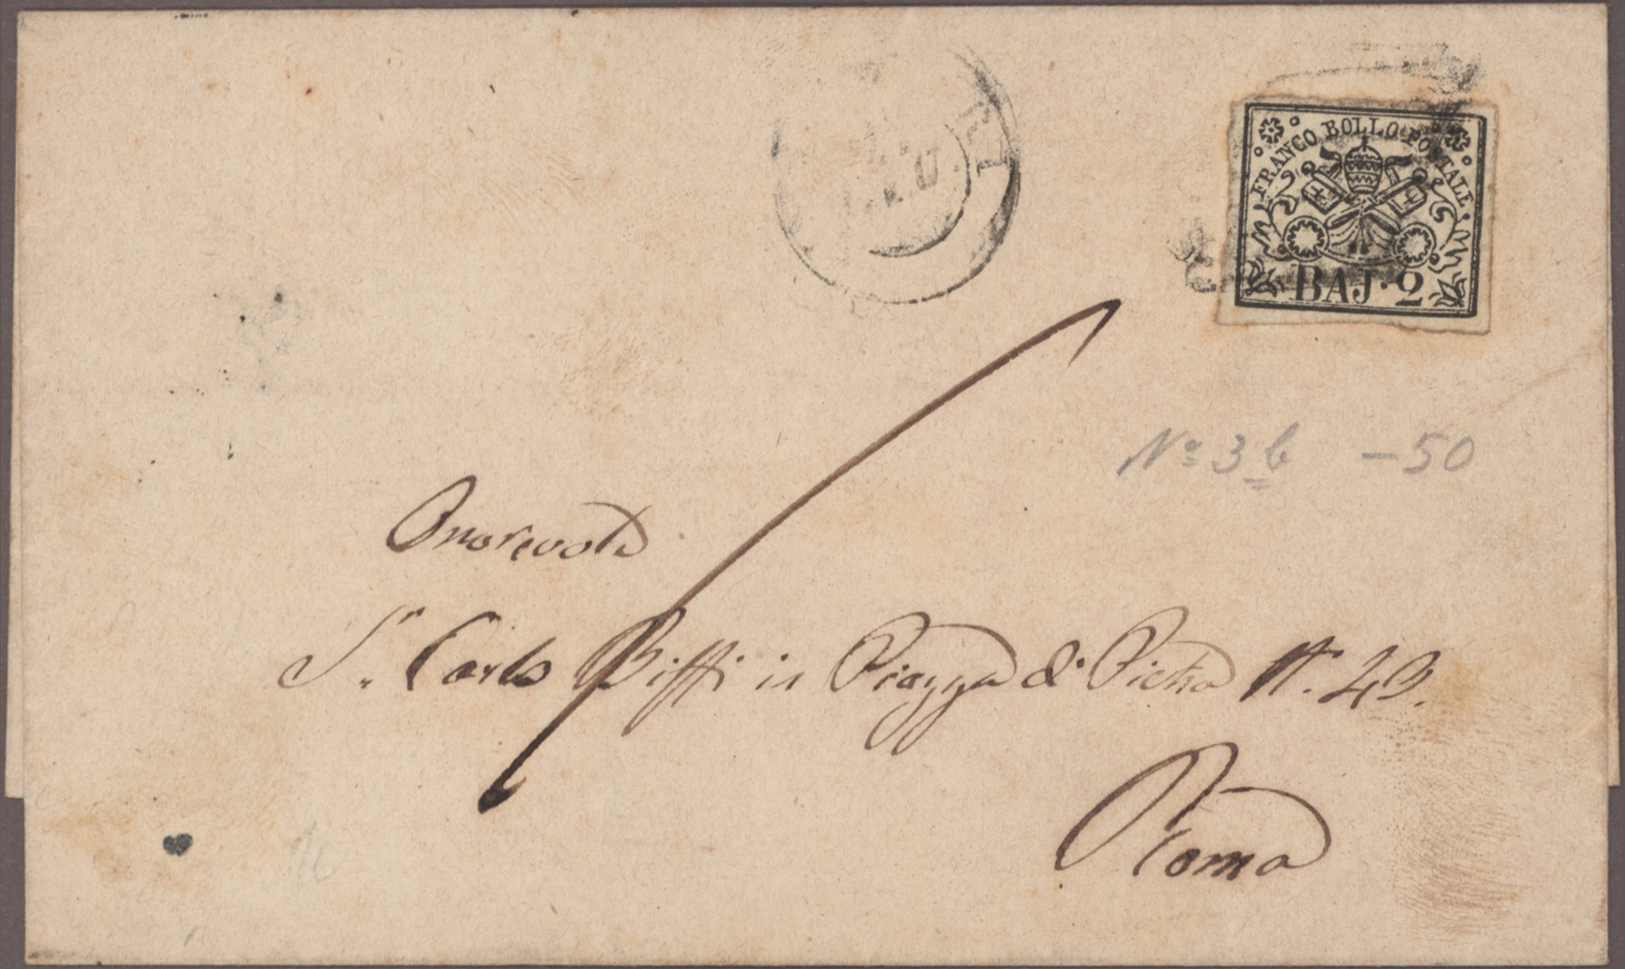 FRANCO BOLLO POSTALE
BAJ. 2
Nº 3 b - 50
Onorevole
S.r Carlo Biffi in Piazza di Pietra N. 49.
Roma